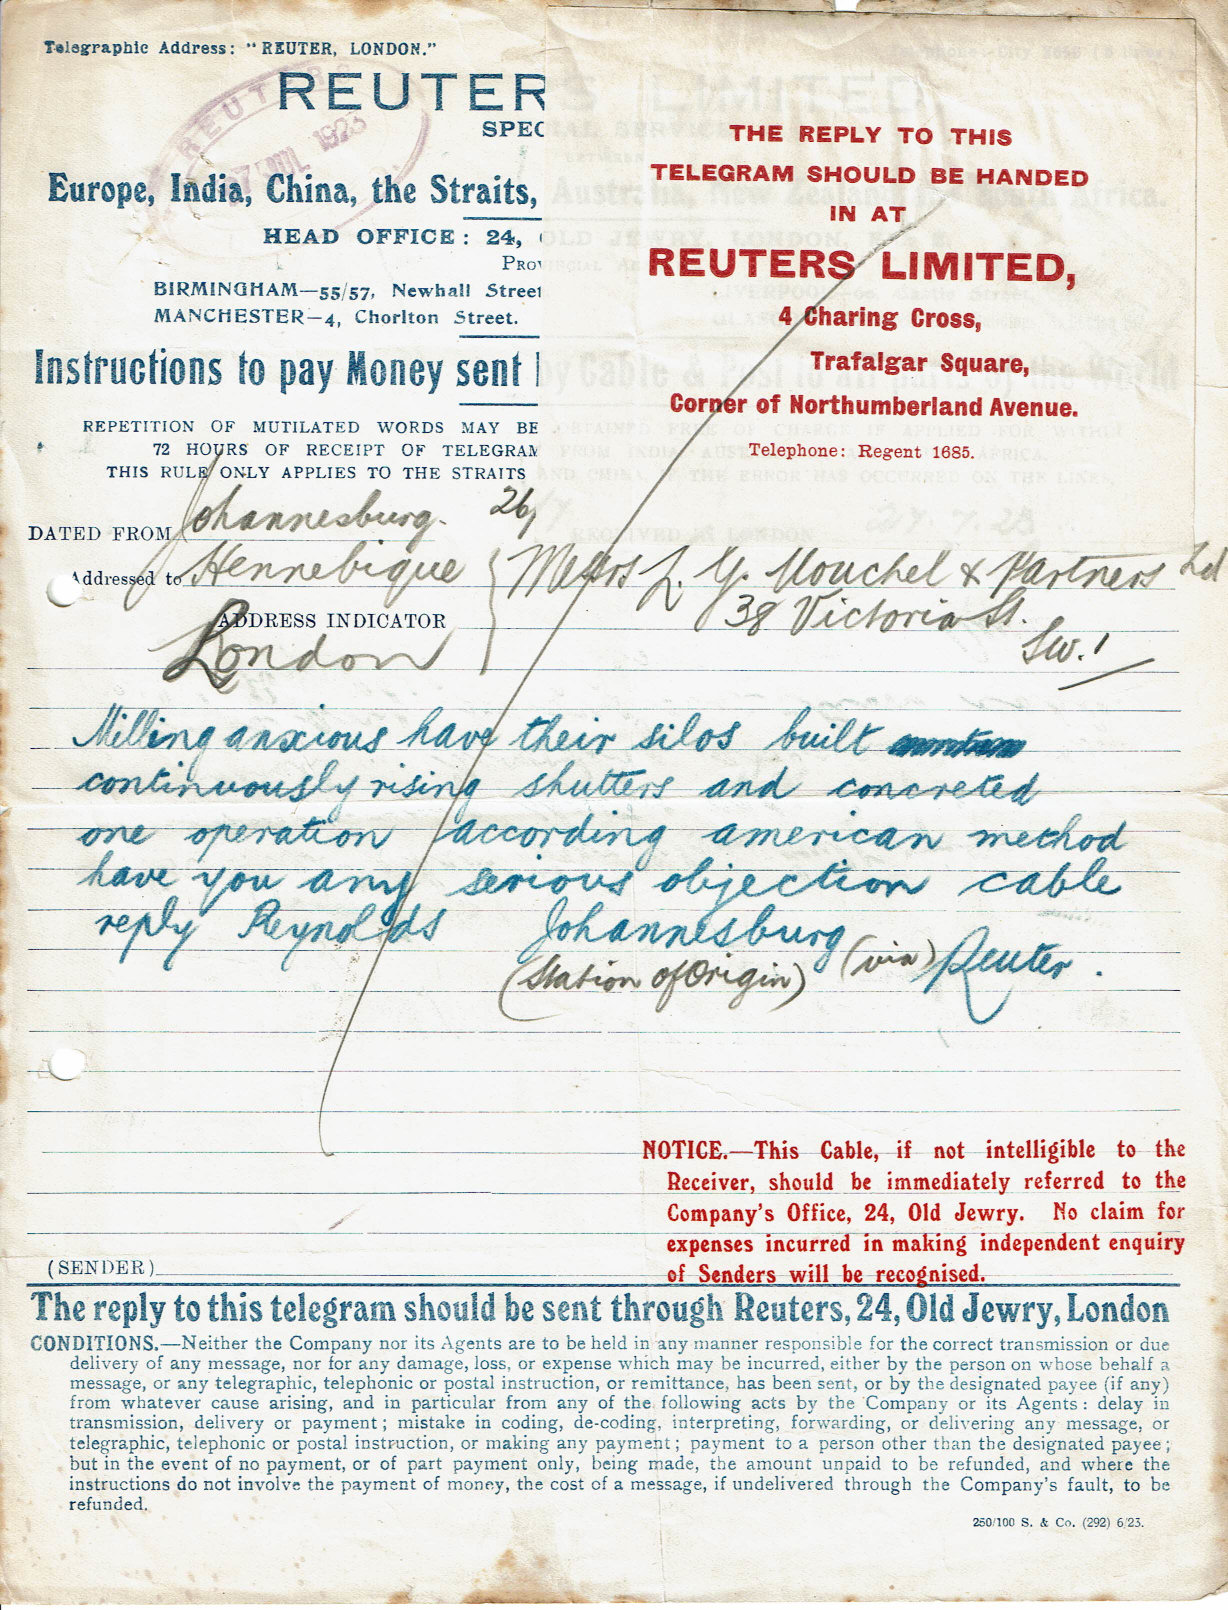 Telegraphic Address: "REUTER, LONDON."
REUTER
SPEC
REUTERS
27 JUL 1923
Europe, India, China, the Straits,
HEAD OFFICE: 24,
PROV
BIRMINGHAM—55/57, Newhall Street
MANCHESTER—4, Chorlton Street.
Instructions to pay Money sent
REPETITION OF MUTILATED WORDS MAY BE
72 HOURS OF RECEIPT OF TELEGRAM
THIS RULE ONLY APPLIES TO THE STRAITS
THE REPLY TO THIS
TELEGRAM SHOULD BE HANDED
IN AT
REUTERS LIMITED,
4 Charing Cross,
Trafalgar Square,
Corner of Northumberland Avenue.
Telephone: Regent 1685.
DATED FROM Johannesburg. 26/
Addressed to Hennebique Messrs L. G. Mouchel & Partners Ltd
ADDRESS INDICATOR 38 Victoria St.
London SW.1
Milling anxious have their silos built
continuously rising shutters and concreted
one operation according american method
have you any serious objection cable
reply Reynolds Johannesburg (via) Reuter.
(Station of Origin)
NOTICE.—This Cable, if not intelligible to the
Receiver, should be immediately referred to the
Company's Office, 24, Old Jewry. No claim for
expenses incurred in making independent enquiry
of Senders will be recognised.
(SENDER)
The reply to this telegram should be sent through Reuters, 24, Old Jewry, London
CONDITIONS.—Neither the Company nor its Agents are to be held in any manner responsible for the correct transmission or due
delivery of any message, nor for any damage, loss, or expense which may be incurred, either by the person on whose behalf a
message, or any telegraphic, telephonic or postal instruction, or remittance, has been sent, or by the designated payee (if any)
from whatever cause arising, and in particular from any of the following acts by the Company or its Agents: delay in
transmission, delivery or payment; mistake in coding, de-coding, interpreting, forwarding, or delivering any message, or
telegraphic, telephonic or postal instruction, or making any payment; payment to a person other than the designated payee;
but in the event of no payment, or of part payment only, being made, the amount unpaid to be refunded, and where the
instructions do not involve the payment of money, the cost of a message, if undelivered through the Company's fault, to be
refunded.
250/100 S. & Co. (292) 6/23.